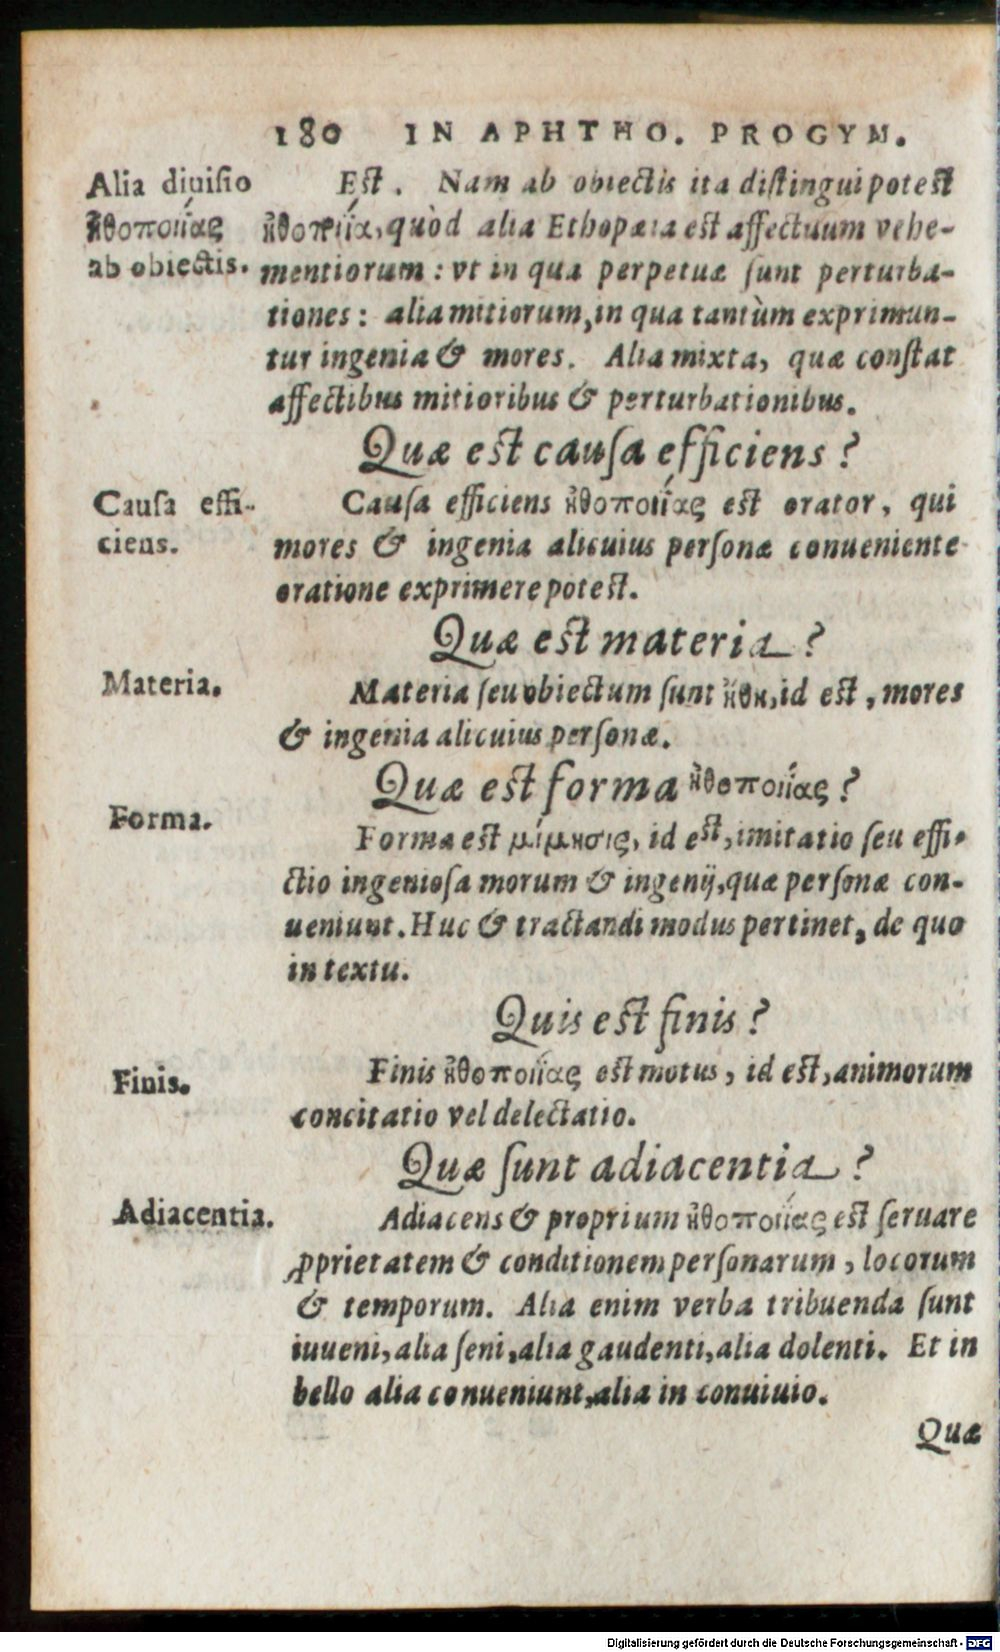 180 IN APHTHO. PROGYM.
Alia diuiſio
ἠθοποιΐας
ab obiectis.
Eſt. Nam ab obiectis ita diſtingui poteſt
ἠθοποιΐα, quòd alia Ethopæia eſt affectuum vehe-
mentiorum: vt in qua perpetuæ ſunt perturba-
tiones: alia mitiorum, in qua tantùm exprimun-
tur ingenia & mores. Alia mixta, quæ conſtat
affectibus mitioribus & perturbationibus.
Quæ eſt cauſa efficiens?
Cauſa effi-
ciens.
Cauſa efficiens ἠθοποιΐας eſt orator, qui
mores & ingenia alicuius perſonæ conueniente
oratione exprimere poteſt.
Quæ eſt materia?
Materia.
Materia ſeu obiectum ſunt ἤθη, id eſt, mores
& ingenia alicuius perſonæ.
Quæ eſt forma ἠθοποιΐας?
Forma.
Forma eſt μίμησις, id eſt, imitatio ſeu effi-
ctio ingenioſa morum & ingenij, quæ perſonæ con-
ueniunt. Huc & tractandi modus pertinet, de quo
in textu.
Quis eſt finis?
Finis.
Finis ἠθοποιΐας eſt motus, id eſt, animorum
concitatio vel delectatio.
Quæ ſunt adiacentia?
Adiacentia.
Adiacens & proprium ἠθοποιΐας eſt ſeruare
ꝓprietatem & conditionem perſonarum, locorum
& temporum. Alia enim verba tribuenda ſunt
iuueni, alia ſeni, alia gaudenti, alia dolenti. Et in
bello alia conueniunt, alia in conuiuio.
Quæ
Digitalisierung gefördert durch die Deutsche Forschungsgemeinschaft - DFG